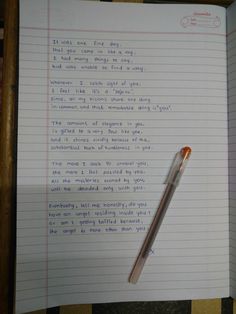 It was one fine day,
that you came in like a ray,
I had many things to say,
but was unable to find a way,
Whenever I catch sight of you,
I feel like it's a "dejavu"
Since, all my visions share one thing
in common and that remarkable thing is "you".
The amount of elegance in you,
is gifted to a very few like you,
and it shines vividly because of the
substantial touch of humbleness in you.
The more I seek to unravel you,
the more I get puzzled by you.
All the mysteries owned by you,
will be decoded only with you.
Eventually, tell me honestly, do you
have an angel residing inside you?
Or am I getting baffled because,
the angel is none other than you